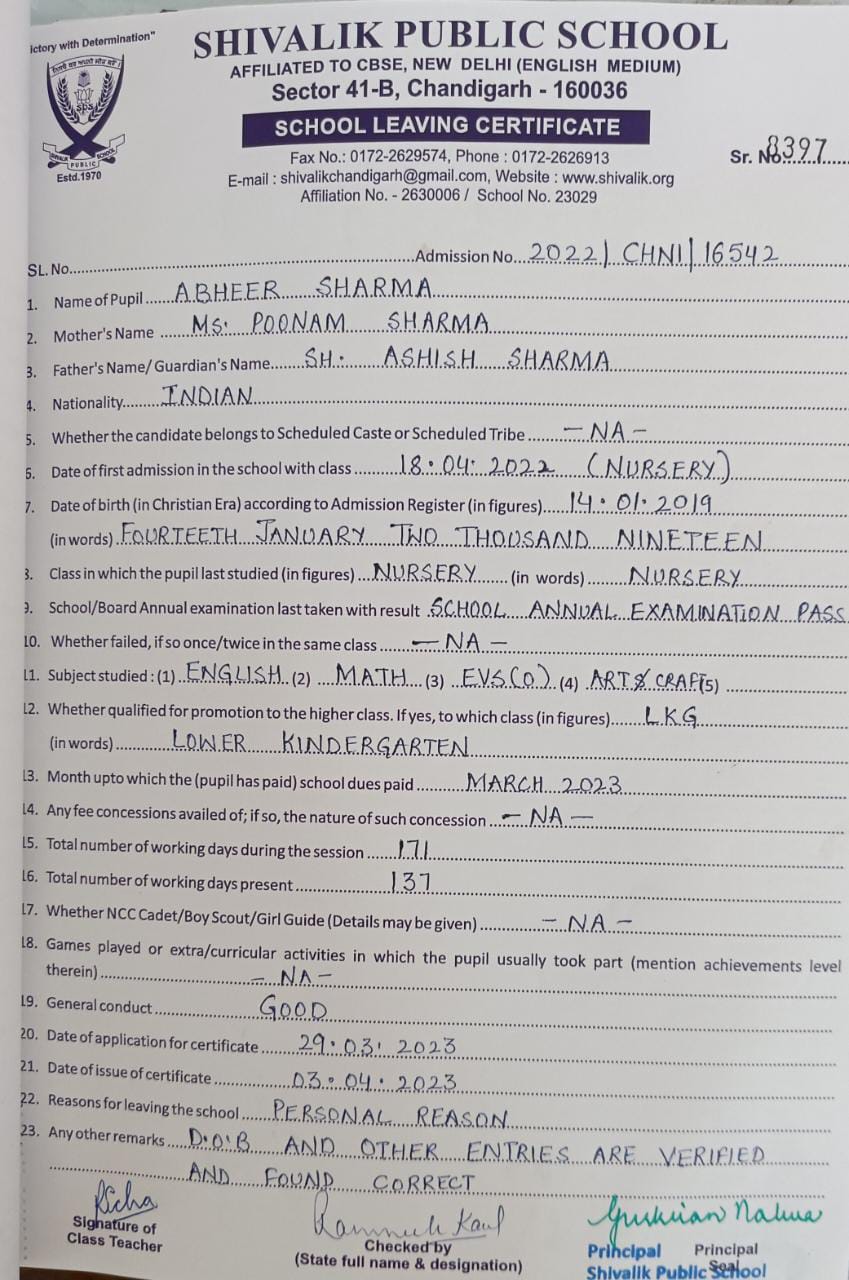 ictory with Determination"
SHIVALIK PUBLIC SCHOOL
AFFILIATED TO CBSE, NEW DELHI (ENGLISH MEDIUM)
Sector 41-B, Chandigarh - 160036
SCHOOL LEAVING CERTIFICATE
SPS
SHIVALIK PUBLIC SCHOOL
Estd.1970
Fax No.: 0172-2629574, Phone : 0172-2626913
Sr. No. 8397
E-mail : shivalikchandigarh@gmail.com, Website : www.shivalik.org
Affiliation No. - 2630006 / School No. 23029
SL. No. Admission No. 2022 | CHNI | 16542
1. Name of Pupil ABHEER SHARMA
2. Mother's Name MS. POONAM SHARMA
3. Father's Name/ Guardian's Name SH. ASHISH SHARMA
4. Nationality INDIAN
5. Whether the candidate belongs to Scheduled Caste or Scheduled Tribe - NA -
6. Date of first admission in the school with class 18.04.2022 (NURSERY)
7. Date of birth (in Christian Era) according to Admission Register (in figures) 14.01.2019
(in words) FOURTEETH JANUARY TWO THOUSAND NINETEEN
8. Class in which the pupil last studied (in figures) NURSERY (in words) NURSERY
9. School/Board Annual examination last taken with result SCHOOL ANNUAL EXAMINATION PASS
10. Whether failed, if so once/twice in the same class - NA -
11. Subject studied : (1) ENGLISH (2) MATH (3) EVS(O) (4) ART & CRAFT (5)
12. Whether qualified for promotion to the higher class. If yes, to which class (in figures) LKG
(in words) LOWER KINDERGARTEN
13. Month upto which the (pupil has paid) school dues paid MARCH 2023
14. Any fee concessions availed of; if so, the nature of such concession - NA -
15. Total number of working days during the session 171
16. Total number of working days present 137
17. Whether NCC Cadet/Boy Scout/Girl Guide (Details may be given) - NA -
18. Games played or extra/curricular activities in which the pupil usually took part (mention achievements level
therein) - NA -
19. General conduct GOOD
20. Date of application for certificate 29.03.2023
21. Date of issue of certificate 03.04.2023
22. Reasons for leaving the school PERSONAL REASON
23. Any other remarks D.O.B AND OTHER ENTRIES ARE VERIFIED
AND FOUND CORRECT
Richa
Signature of
Class Teacher
Kaul
Checked by
(State full name & designation)
Principal Principal
Seal
Shivalik Public School